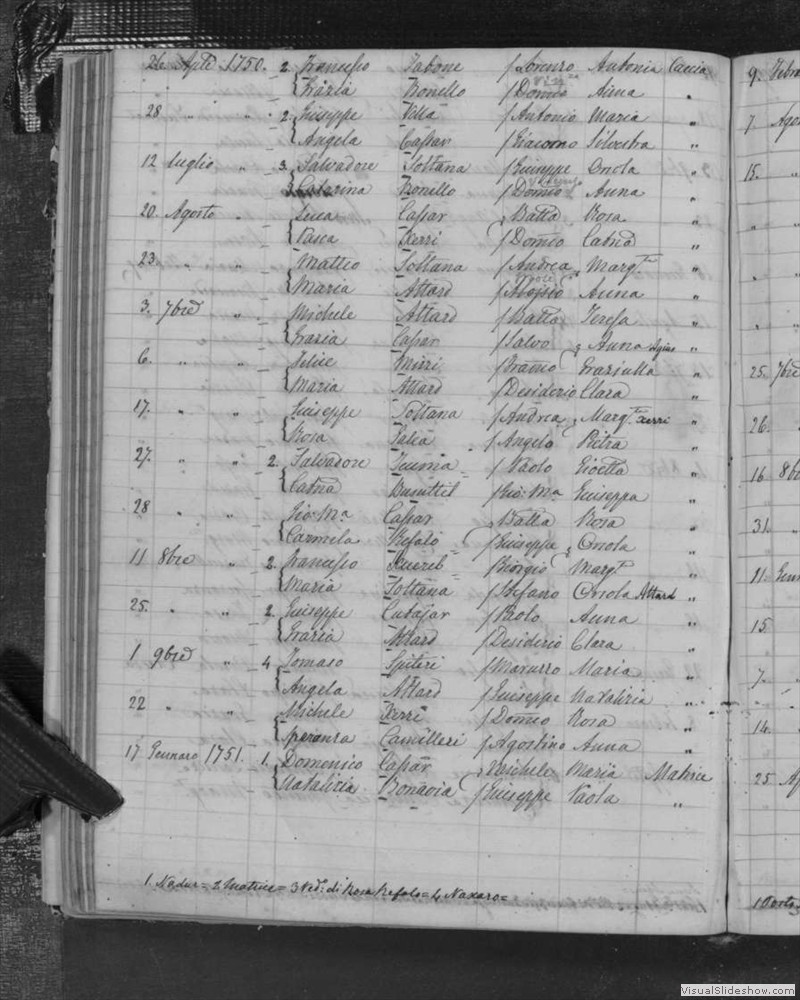 26 Aple 1750. 2. Francesco Zabone f Lorenzo Antonia Caccia 9. Febra
Grazia Bonello f Domco Anna "
28 " " 2. Giuseppe Vella f Antonio Maria " 7. Agos
Angela Caspar f Giacomo Silvestra "
12 Luglio " 3. Salvadore Soltana f Giuseppe Orsola " 15.
3 Caterina Bonello f Domco Anna "
20. Agosto " Luca Caspar f Batta Rosa "
Pasca Xerri f Domco Catna "
23 " " Matteo Soltana f Andrea Margta "
Maria Attard f Aloisio Anna "
3. 7bre " Michele Attard f Batta Teresa "
Grazia Caspar f Salvo Anna "
6. " " Felice Mizzi f Gramo Graziulla " 25. 7bre
Maria Attard f Desiderio Clara "
17. " " Giuseppe Soltana f Andrea Margta Xerri " 26.
Rosa Falca f Angelo Pietra "
27. " " 2. Salvadore f Paolo Gioetta " 16 8b
Catna Busuttil f Gio: Ma Giuseppa "
28 " " Gio: Ma Caspar Batta Rosa " 31.
Carmela Refalo f Giuseppe Orsola "
11 8bre " 2. Francesco f Giorgio Margta " 11 Genn
Maria Soltana f Stefano Orsola Attard "
25. " " 2. Giuseppe Cutajar f Paolo Anna " 15
Grazia Attard f Desiderio Clara "
1 9bre " 4 Tomaso Spiteri f Mavurro Maria " 7.
Angela Attard f Giuseppe Natalizia "
22 " " Michele Xerri f Domco Rosa " 14.
Speranza Camilleri f Agostino Anna "
17 Gennaro 1751. 1. Domenico Caspar f Michele Maria Matrice 25 Ap
Natalizia Bonavia f Giuseppe Paola "
1. Nadur = 2 Matrice = 3 Ved: di Rosa Refalo = 4 Naxaro =
VisualSlideshow.com